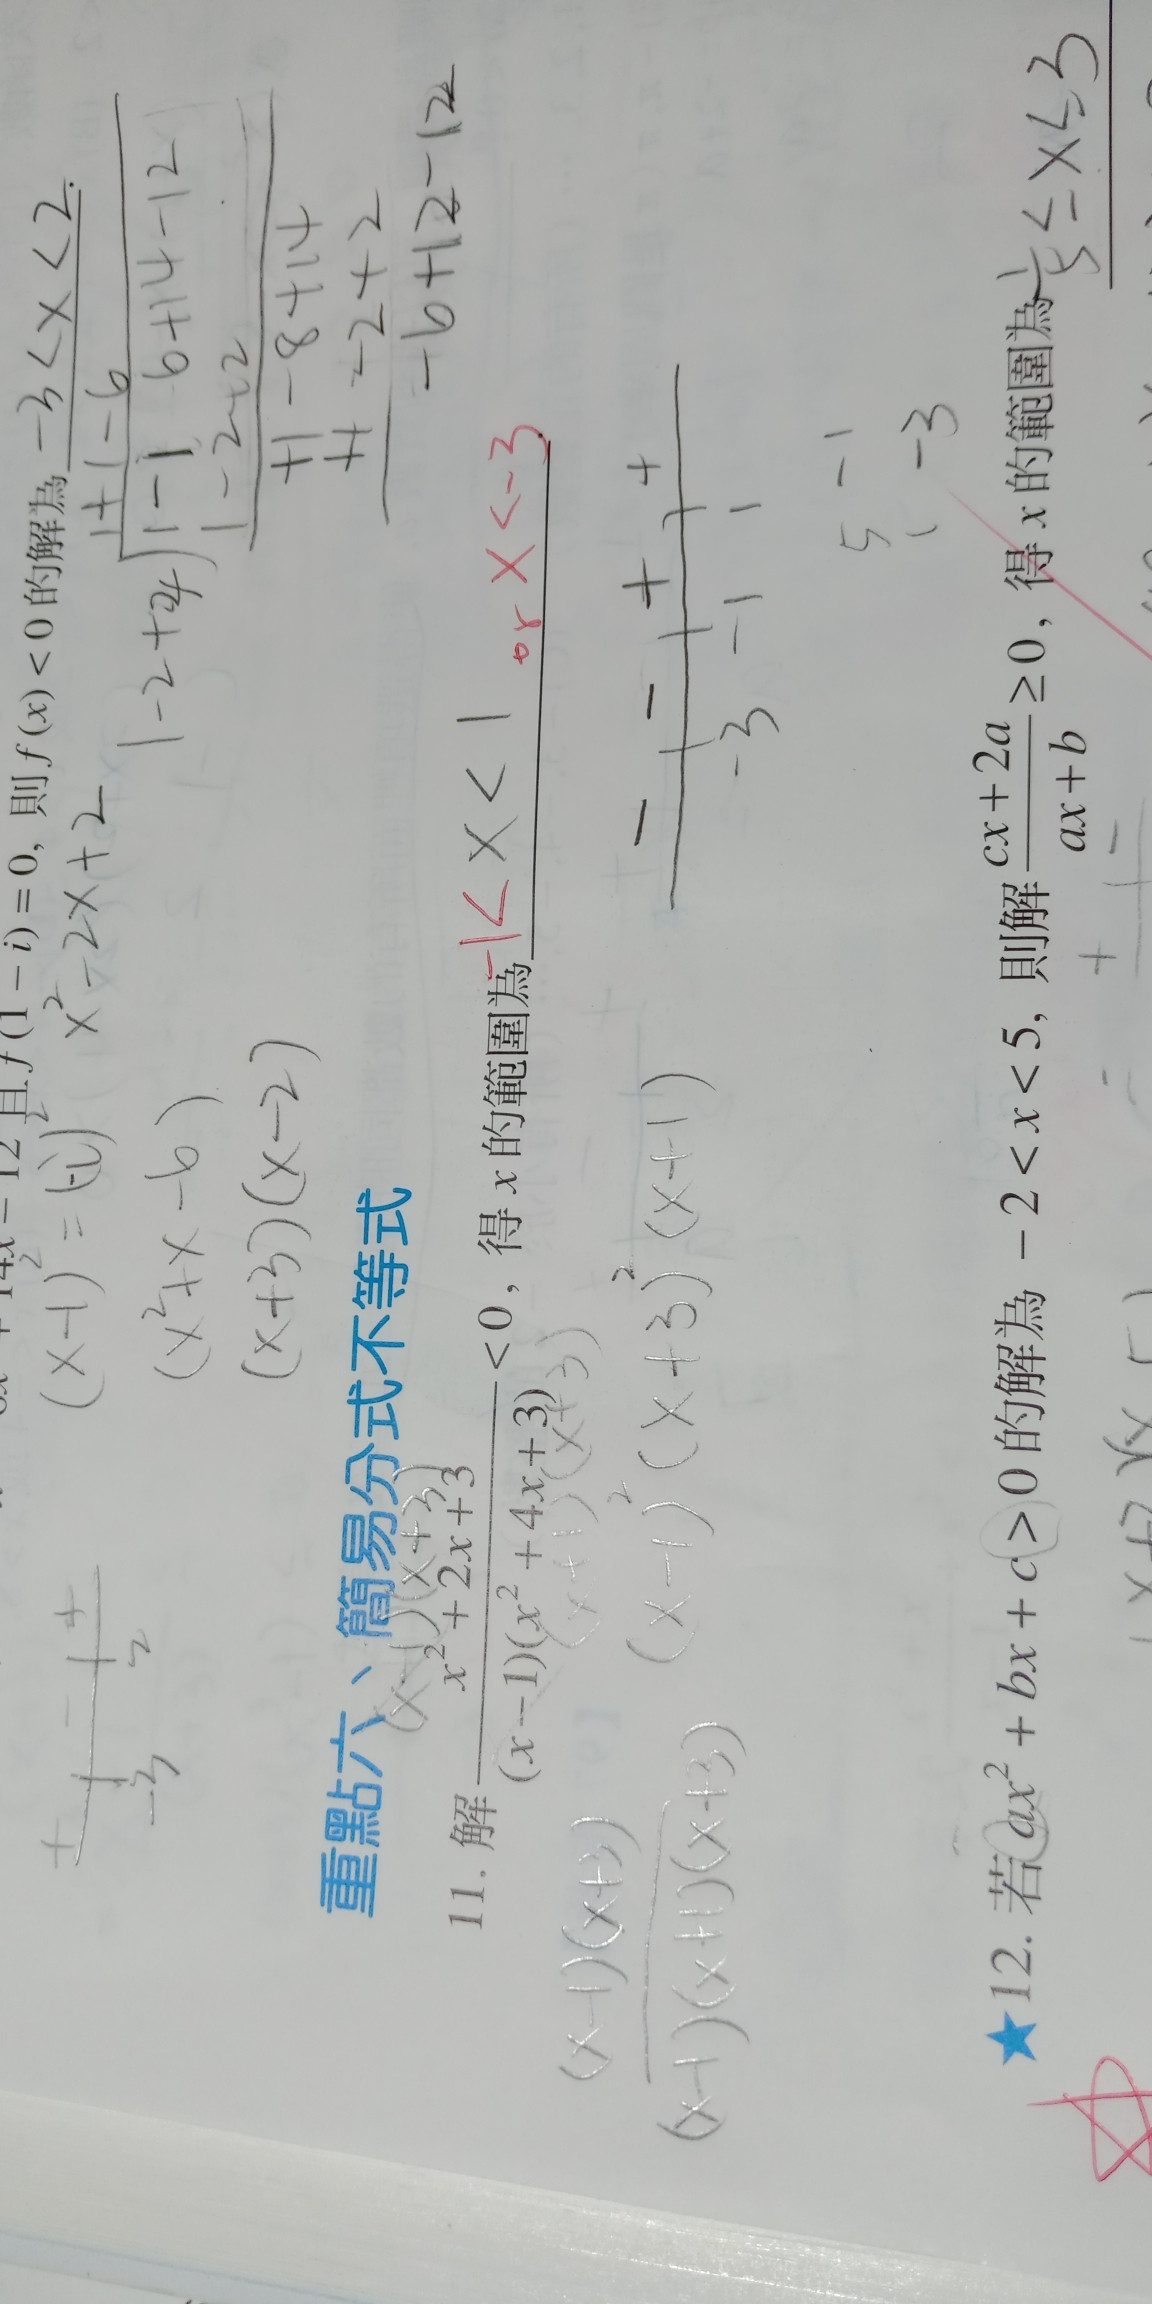 且f(1-i)=0，則f(x)<0的解為 -3<x<2.
(x-1)²=(-i)² x²-2x+2
(x²+x-6)
(x+3)(x-2)
+ - +
-3 2
1+1-6
1-2+2 1-1 6+14-12
1-2+2
+1-8+14
+1-2+2
-6+12-12
重點六、簡易分式不等式
(x-1)(x+3)
11. 解 x²+2x+3 / (x-1)(x²+4x+3) <0，得x的範圍為 -1<x<1 or x<-3
(x+1)(x+3)
(x-1)(x+3)
(x-1)(x+1)(x+3)
(x-1)²(x+3)²(x+1)
- - + +
-3 -1 1
5 -1
1 -3
★12. 若ax²+bx+c>0的解為-2<x<5，則解 cx+2a / ax+b ≥0，得x的範圍為 1/5≤x≤3
- + -